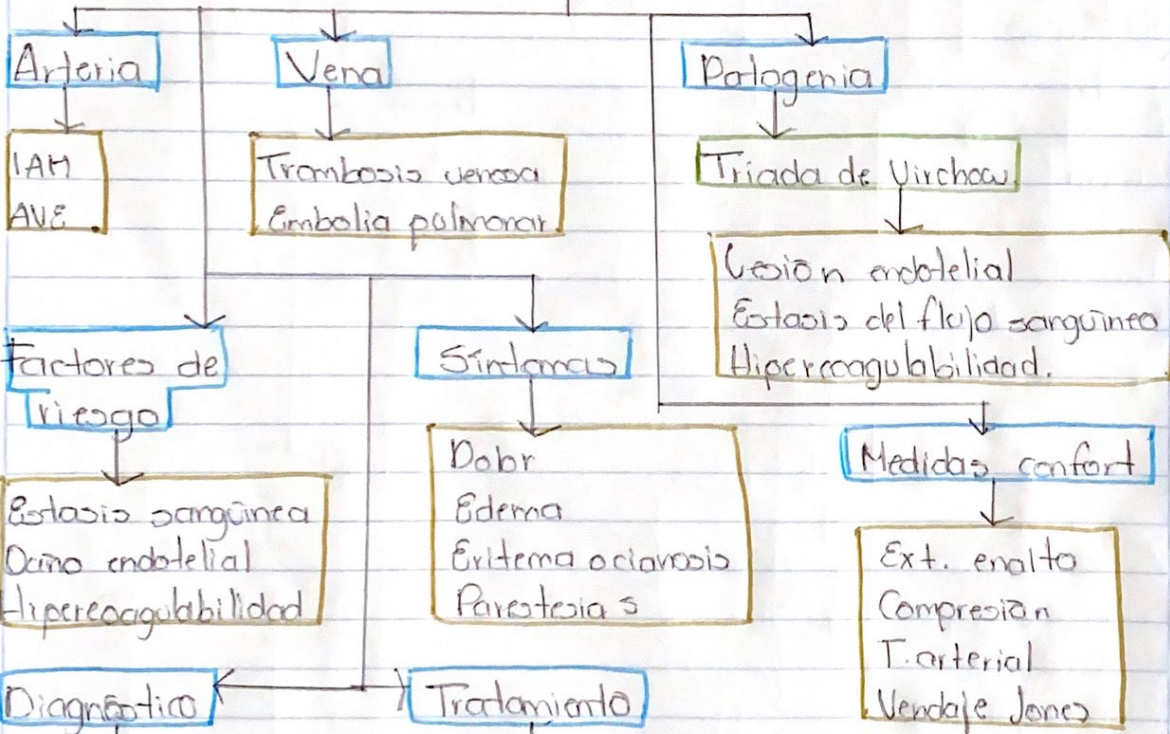 Arteria
IAM
AVE
Vena
Trombosis venosa
Embolia pulmonar
Patogenia
Triada de Virchow
Lesión endotelial
Estasis del flujo sanguíneo
Hipercoagulabilidad.
Factores de
riesgo
Estasis sangüinea
Daño endotelial
Hipercoagulabilidad
Síntomas
Dolor
Edema
Eritema o cianosis
Parestesias
Medidas confort
Ext. en alto
Compresión
T. arterial
Vendaje Jones
Diagnóstico
Tratamiento